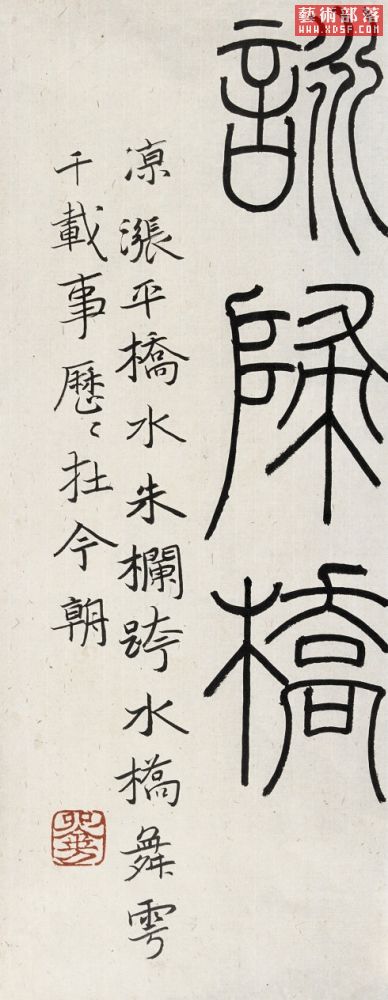 藝術部落
WWW.XDSF.COM
詠歸橋
涼漲平橋水朱欄跨水橋舞雩
千載事歷〻在今朝